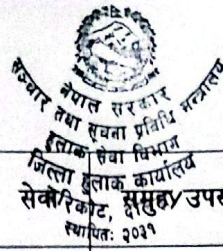 नेपाल सरकार
सञ्चार तथा सूचना प्रविधि मन्त्रालय
हुलाक सेवा विभाग
जिल्ला हुलाक कार्यालय
सेवा समुह/उपस
स्थापितः २०३१